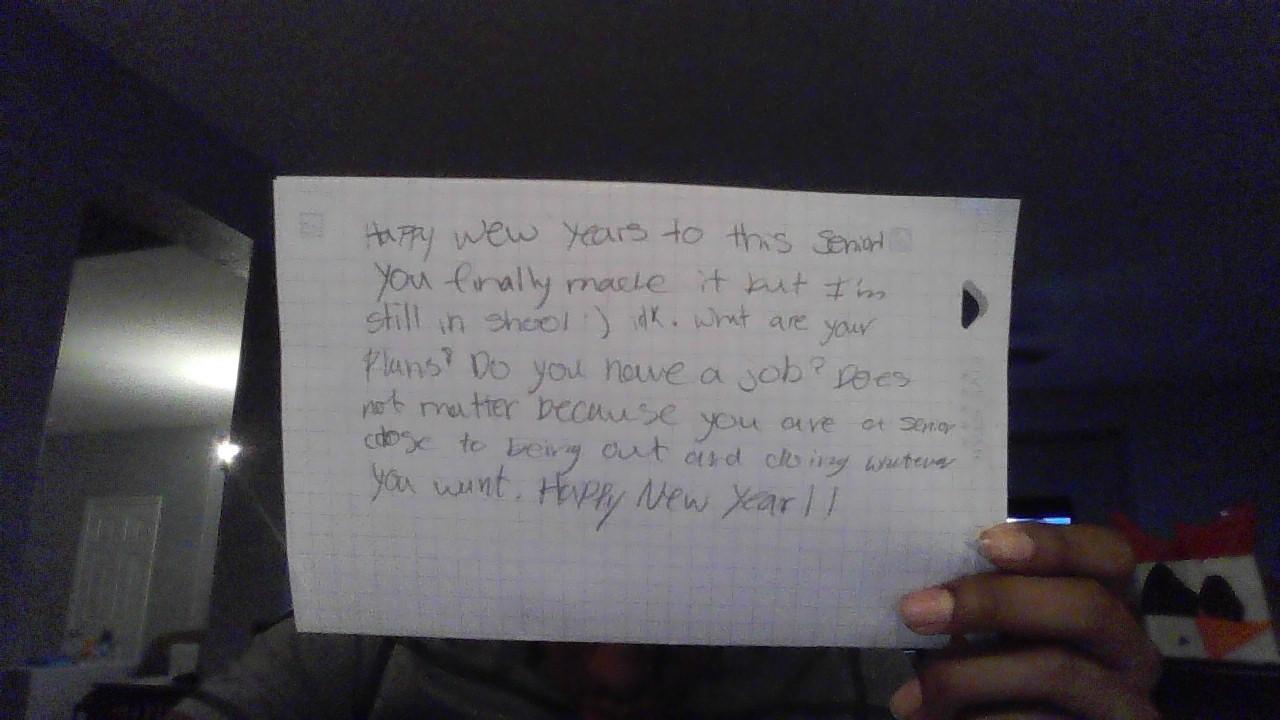 Happy Wew Years to this senior
you finally made it but I'm
still in shool :) idk. What are your
Plans? Do you have a job? Does
not matter because you are a senior
close to being out and doing whatever
you want. Happy New Year!!